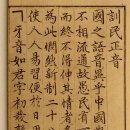 訓民正音
國之語音異乎中國
不相流通故愚民有
而終不得伸其情者
為此憫然新制二十八
使人人易習便於日用
ㄱ牙音如君字初發聲